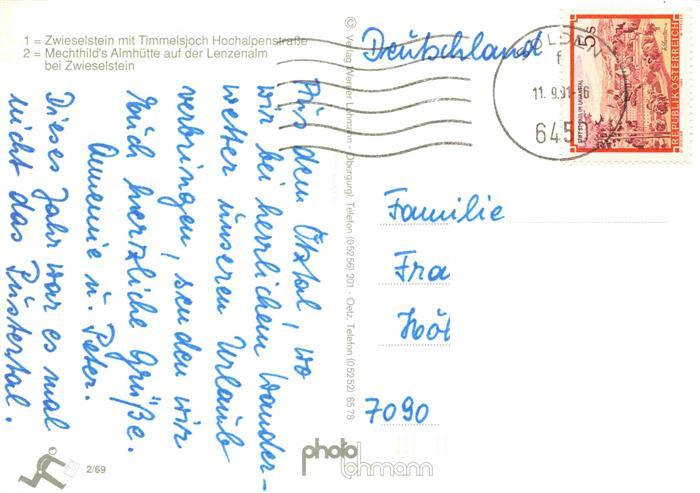 1 = Zwieselstein mit Timmelsjoch Hochalpenstraße
2 = Mechthild's Almhütte auf der Lenzenalm
bei Zwieselstein
Aus dem Ötztal, wo
wir bei herrlichem Wander-
wetter unseren Urlaub
verbringen, senden wir
Euch herzliche Grüße.
Annemie u. Peter.
Dieses Jahr war es mal
nicht das Pustertal.
2/69
© Verlag Werner Lohmann - Obergurgl, Telefon (05256) 201 - Oetz, Telefon (05252) 6578
photo
lohmann
Deutschland
11. 9.91-16
645
5s
REPUBLIK ÖSTERREICH
Familie
Fra
Höl
7090